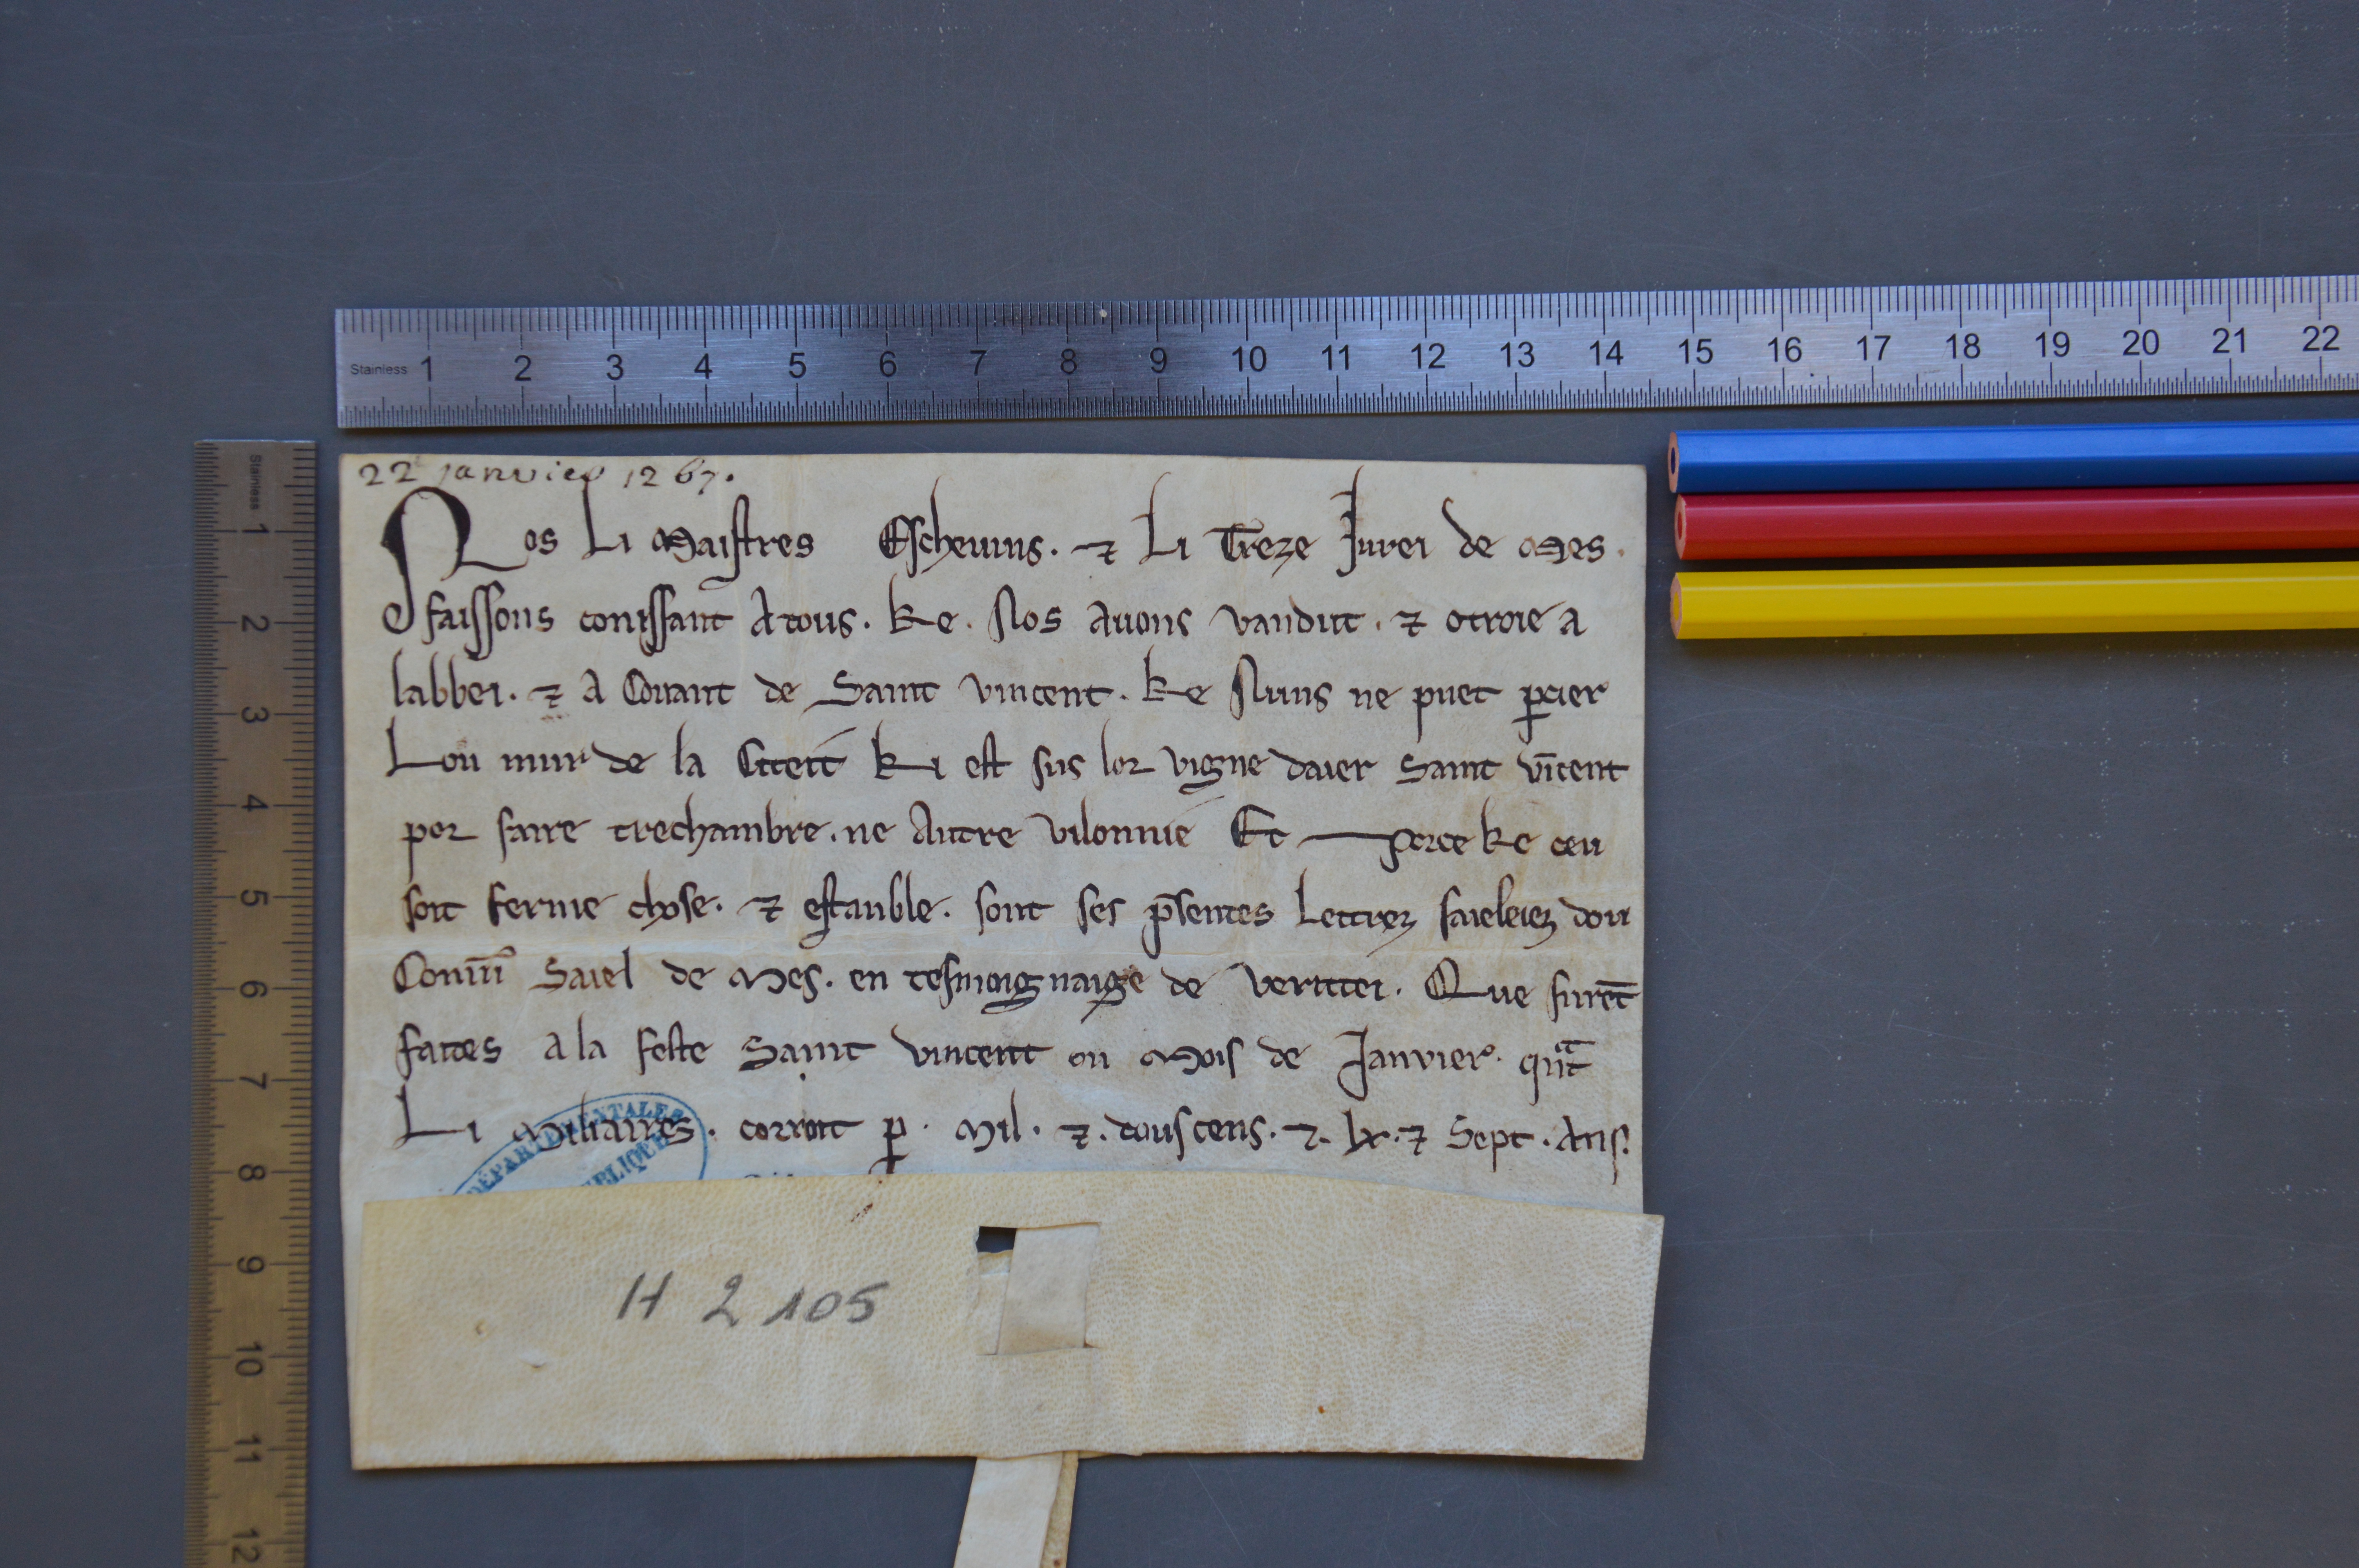 22 janvier 1267.
Nos Li Maistres Escheuins. ⁊ Li Treze Jurei de Mes.
faissons conissant A tous. ke. Nos Auons vandut. ⁊ otroie a
labbei. ⁊ A Couant de Saint vincent. ke Nuns ne puet ꝑcier
Lou mur de la Citeit ki est sus lor vigne daier Saint vīcent
por faire trechambre. ne Autre vilonnie Et porce ke ceu
soit ferme chose. ⁊ estauble. sont ses p̄sentes Lettrez saieleiez dou
Comū Saiel de Mes. en tesmoignaige de veritei. Que furēt
faites a la feste Saint vincent ou Mois de Janvier. qn̄t
Li Miliaires. corroit ꝑ. Mil. ⁊. dous cens. ⁊. lx. ⁊ Sept. Ans.
DÉPARTEMENTALES
H 2105
Stainless 1 2 3 4 5 6 7 8 9 10 11 12 13 14 15 16 17 18 19 20 21 22
Stainless 1 2 3 4 5 6 7 8 9 10 11 12